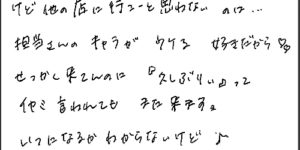 けど 他の店に行こーと思わない のは…
担当さんの キャラが ウケる 好きだから
せっかく来てんのに 『久しぶりぃ』って
言われても また 来ます。
いつになるか わからないけど ♪